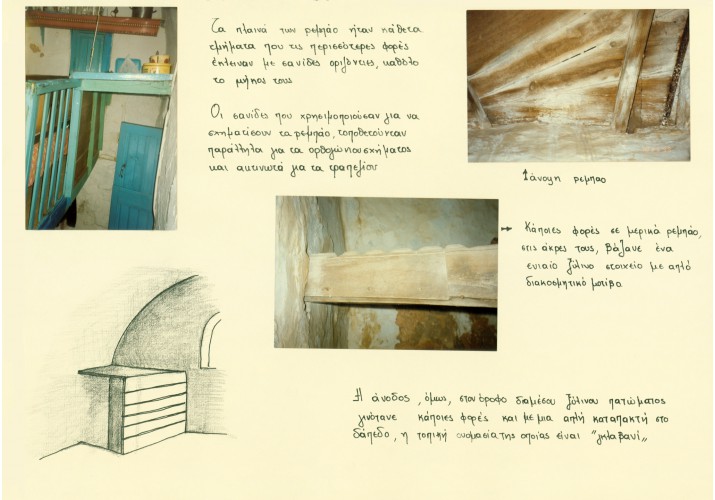 Τα πλαινά των ρεμπάο ήταν κάθετα
τμήματα που τις περισσότερες φορές
έκλειναν με σανίδες οριζόντιες, καθόλο
το μήκος τους
Οι σανίδες που χρησιμοποιούσαν για να
σχηματίσουν τα ρεμπάο, τοποθετούνταν
παράλληλα για τα ορθογώνιου σχήματος
και ακτινωτά για τα τραπέζιου
κάτοψη ρεμπαο
Κάποιες φορές σε μερικά ρεμπάο,
στις άκρες τους, βάζανε ένα
ενιαίο ξύλινο στοιχείο με απλό
διακοσμητικό μοτίβο
Η άνοδος, όμως, στον όροφο διαμέσου ξύλινου πατώματος
γινότανε κάποιες φορές και με μια απλή καταπακτή στο
δάπεδο, η τοπική ονομασία της οποίας είναι "γκλαβανί„